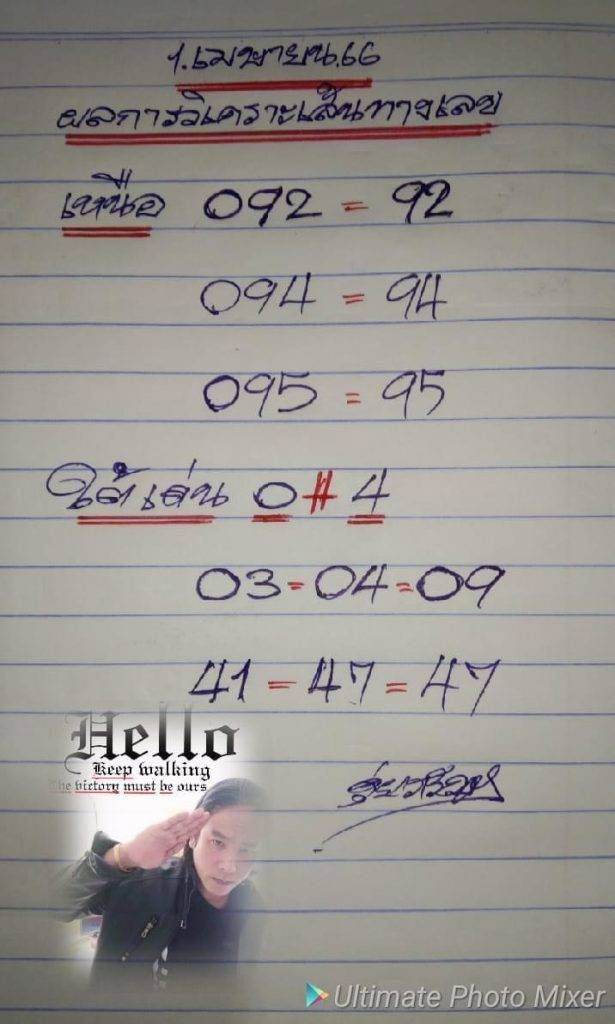 1.เมษายน.66
ผลการวิเคราะเส้นทางเลข
เหนือ 092 = 92
094 = 94
095 = 95
ใต้เด่น 0 # 4
03 = 04 = 09
41 = 47 = 47
Hello
Keep walking
The victory must be ours
Ultimate Photo Mixer